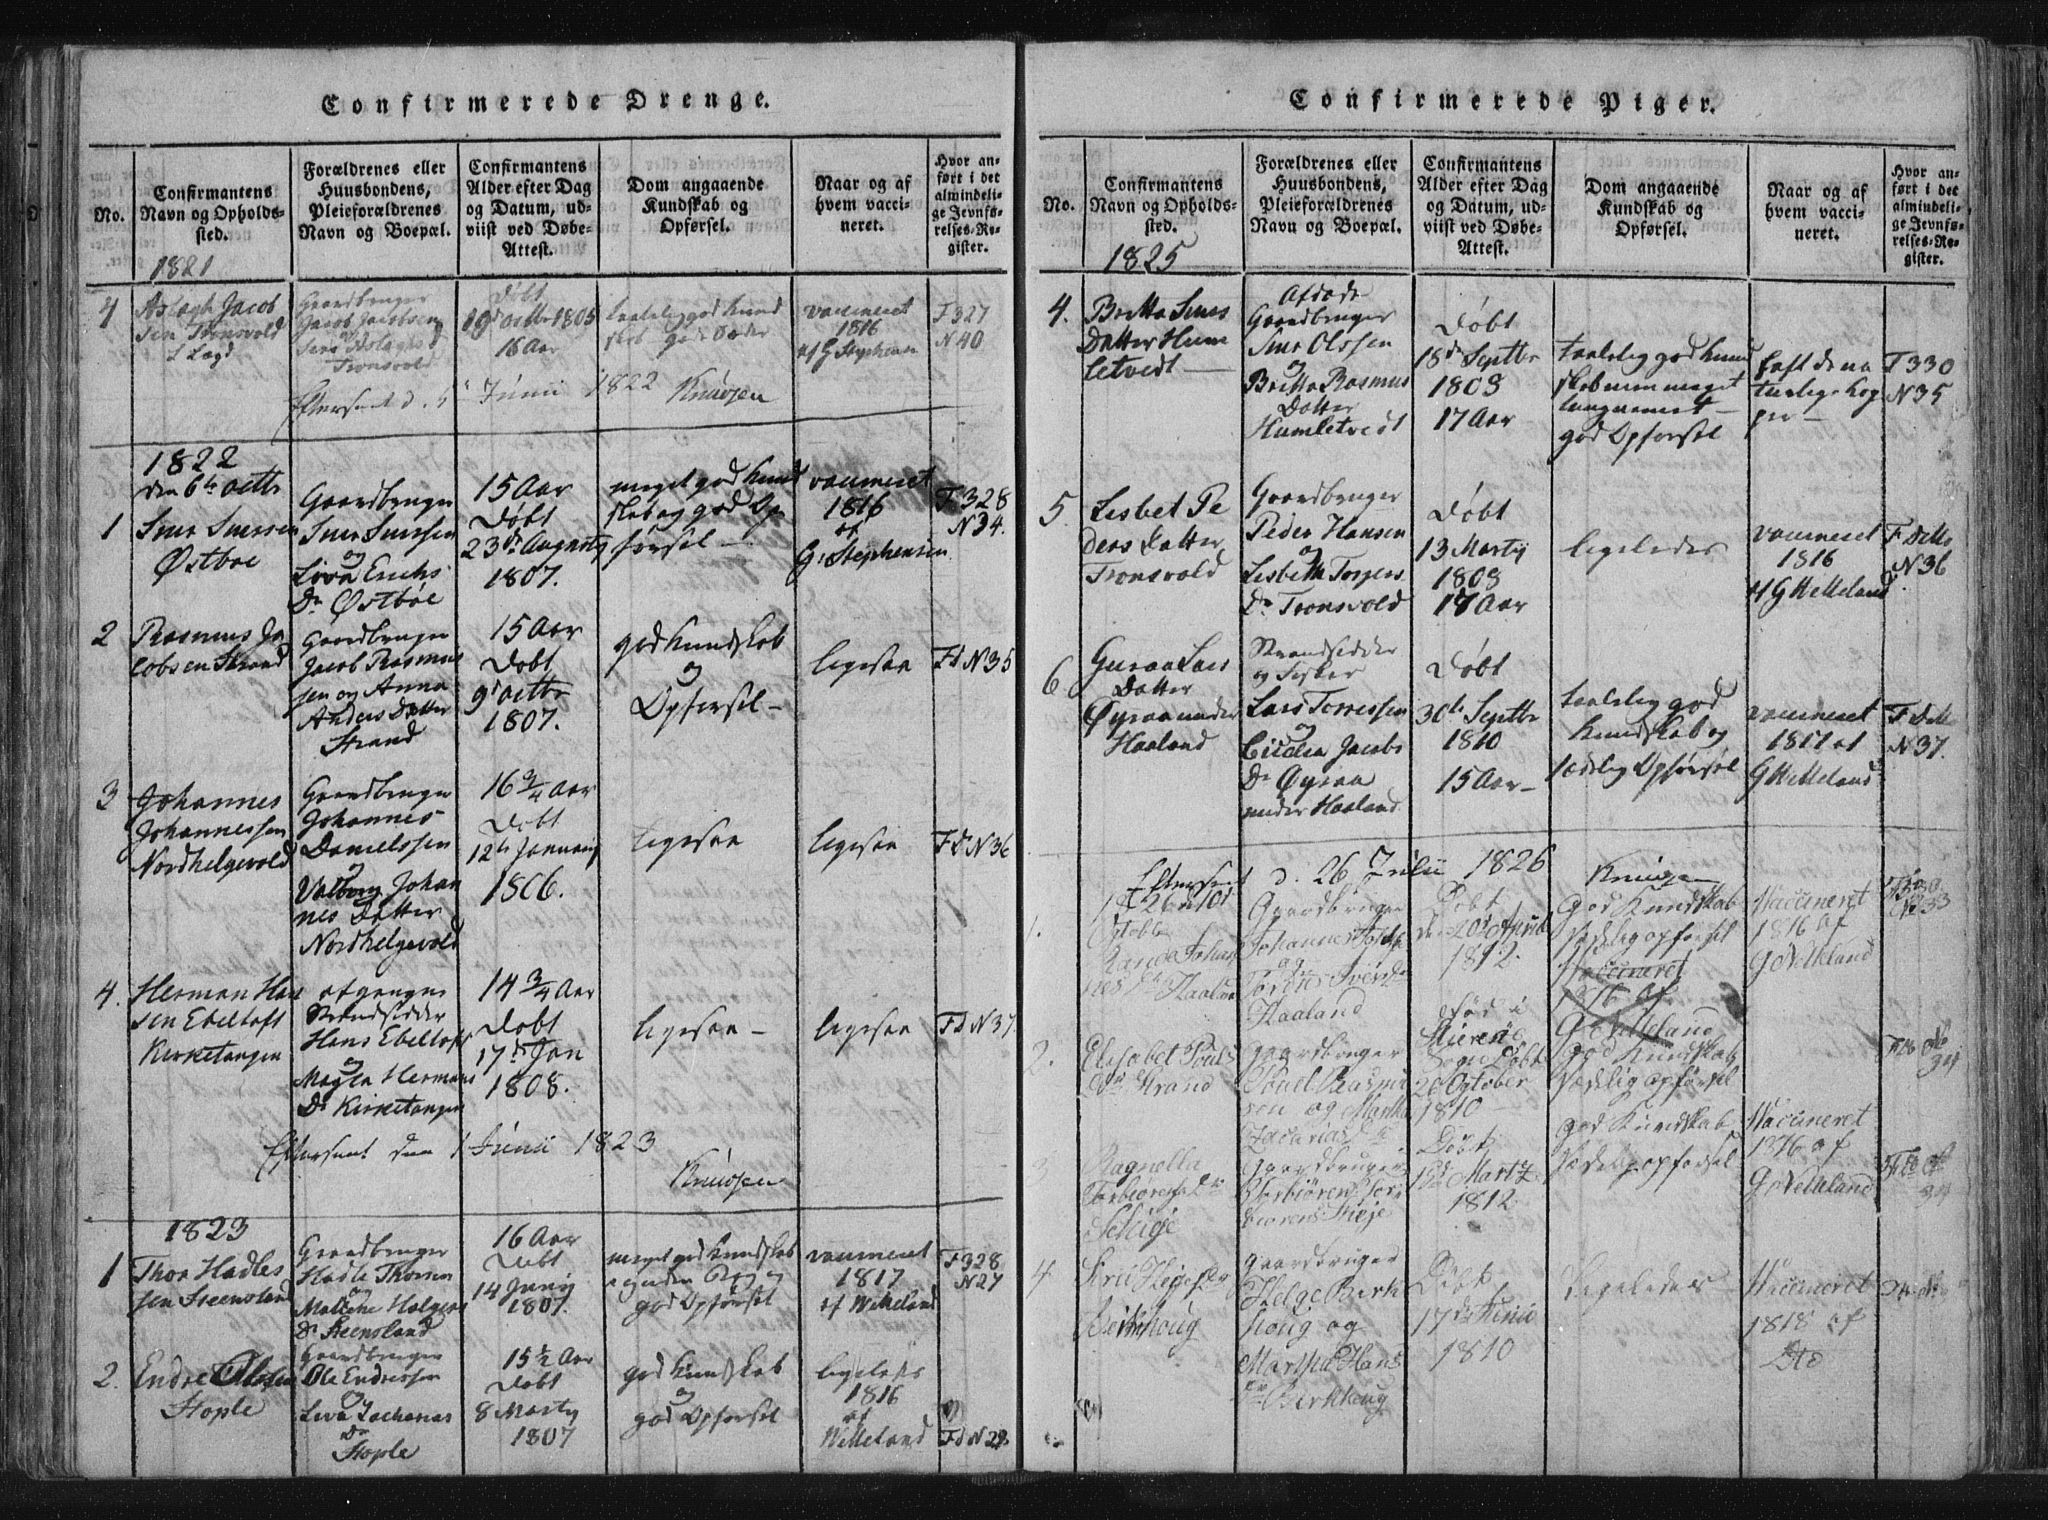 Confirmerede Drenge.
No.
Confirmantens
Navn og Opholds-
sted.
Forældrenes eller
Huusbondens,
Pleieforældrenes
Navn og Boepæl.
Confirmantens
Alder efter Dag
og Datum, ud-
viist ved Døbe-
Attest.
Dom angaaende
Kundskab og
Opførsel.
Naar og af
hvem vacci-
neret.
Hvor an-
ført i det
almindeli-
ge Jevnfø-
relses-Re-
gister.
1821
4
Aslagh Jacob
sen Tronsvold
Gaardbruger
Jacob Jacobsen
og
Tronsvold
Døbt
19d octbr 1805
16 Aar
taalelig god Kund
skab gode Sæder
1816
F 327
N 40
Efterseet d. 5 Junii 1822 Knudsen
1822
den 6te octbr
1
Østboe
Gaardbruger
og
Dr Østböe
15 Aar
Døbt
23de Augusty
1807.
meget god Kund
skab og god Op
førsel —
vaccineret
1816
af
G. Stephensen
F 328
N 34.
2
Rasmus Ja
cobsen Strand
Gaardbruger
Jacob Rasmus
sen og Anna
Anders Datter
Strand
15 Aar
Døbt
9d octbr
1807.
god Kundskab
og
Opførsel —
ligesaa
Fd N 35
3
Johannes
Johannessen
Nordhelgevold
Gaardbruger
Johannes
Danielssen
og
Valborg Johan
nes Datter
Nordhelgevold
16 3/4 Aar
Døbt
12te January
1806.
ligesaa
ligesaa
Fd N 36
4.
Herman Han
sen Ebeltoft
Kirketangen
afgangne
Strandsidder
Hans Ebeltoft
og
Magla Hermans
Dr Kirketangen
14 3/4 Aar
Døbt
17de Jan
1808.
ligesaa —
ligesaa
Fd N 37.
Efterseet den 1 Junii 1823
Knudsen
1823
1
Thor Hadles
sen Steensland
Gaardbruger
Hadle Thorsen
og
Malene Holgers
Dr Steensland
16 Aar
Døbt
14 Juny
1807.
meget god Kundskab
god Opførsel
vaccineret
1817
af Wikeland
F 328
N 27
2.
Endre Olssen
Stople
Gaardbruger
Ole Endressen
og
Liva Zacharias
Dr
Stople
15 1/2 Aar
Døbt
8 Marty
1807
god Kundskab
og
god Opførsel
ligeledes
1816
af
Wikeland
Fd N 28.
Confirmerede Piger.
No.
Confirmantens
Navn og Opholds-
sted.
Forældrenes eller
Huusbondens,
Pleieforældrenes
Navn og Boepæl.
Confirmantens
Alder efter Dag
og Datum, ud-
viist ved Døbe-
Attest.
Dom angaaende
Kundskab og
Opførsel.
Naar og af
hvem vacci-
neret.
Hvor an-
ført i det
almindeli-
ge Jevnfø-
relses-Re-
gister.
1825
4.
Datter Hum
letvedt —
Afdøde
Gaardbruger
Olssen
og
Britta Rasmus
Datter
Humletvedt
Døbt
18de Septbr
1808
17 Aar
taalelig god Kund
skab men meget
tungnemet —
god Opførsel
haft de na
turlige Kop
per —
F 330
N 35
5
Lisbet Pe
ders Datter
Tronsvold
Gaardbruger
Peder Hansen
og
Lisbeth Torgers
Dr Tronsvold
Døbt
13 Marty
1808
17 Aar
ligeledes
vaccineret
1816
af G Welleland
F Ditto
N 36
6
Guroa Lars
Datter
Øyraa under
Haaland
Strandsidder
og Fisker
Lars Torressen
og
Cicilia Jacobs
Dr Øyraa
under Haaland
Døbt
30te Septbr
1810
15 Aar —
taalelig god
Kundskab og
sædelig Opførsel
vaccineret
1817 af
G Welleland
F Ditto
N 37.
Efterseet d. 26 Julii 1826 Knudsen
1.
Octobr
Haaland
Gaardbruger
Johannes
og
Haaland
Døbt
den 20d April
1812.
God Kundskab
Sædelig opførsel
Vaccineret
1816 af
G Velleland
Vaccineret
1816 af
G Velleland
2.
Elisabet Pouls
Dtr Strand
Gaardbruger
Pouel Rasmu
sen og Martha
Zacarias Dtr
født i
Sogn Døbt
20 October
1810
God Kundskab
Sædelig opførsel
3
Ragnella
Torbiörns Dtr
Gaardbruger
Torbiören
Døbt
Martz
1812
god Kundskab
Sædelig opførsel
Vaccineret
1816 af
G Velleland
4
Siri Helge Dr
Berkhoug
Gaardbruger
Helge Berk
houg og
Martha Hans
Dr Berkhoug
Døbt
17de Junii
1810
Ligeledes
Vaccineret
1818 af
Dto